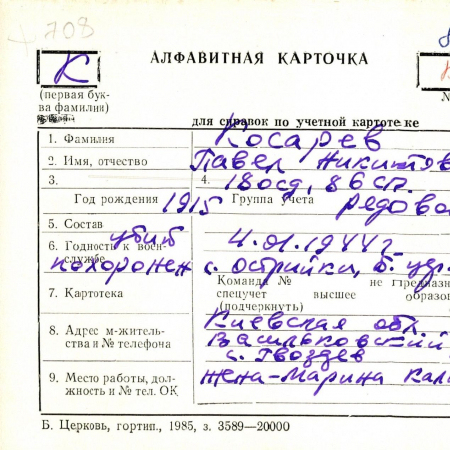 708
К
АЛФАВИТНАЯ КАРТОЧКА
(первая бук-
ва фамилии)
№
для справок по учетной картотеке
1. Фамилия Косарев
2. Имя, отчество Павел Никитов
3. 4. 180сд, 86сп.
Год рождения 1915 Группа учета рядово
5. Состав убит 4.01.1944г.
6. Годность к воен-
службе похоронен с. Острийки, Б. Цер
Команда № не предназн
7. Картотека спецучет высшее образо
(подчеркнуть)
Киевская обл.
8. Адрес м-житель- Васильковский
ства и № телефона с. Гвоздев
9. Место работы, дол- жена-Марина Кал
жность и № тел. ОК
Б. Церковь, гортип., 1985, з. 3589—20000